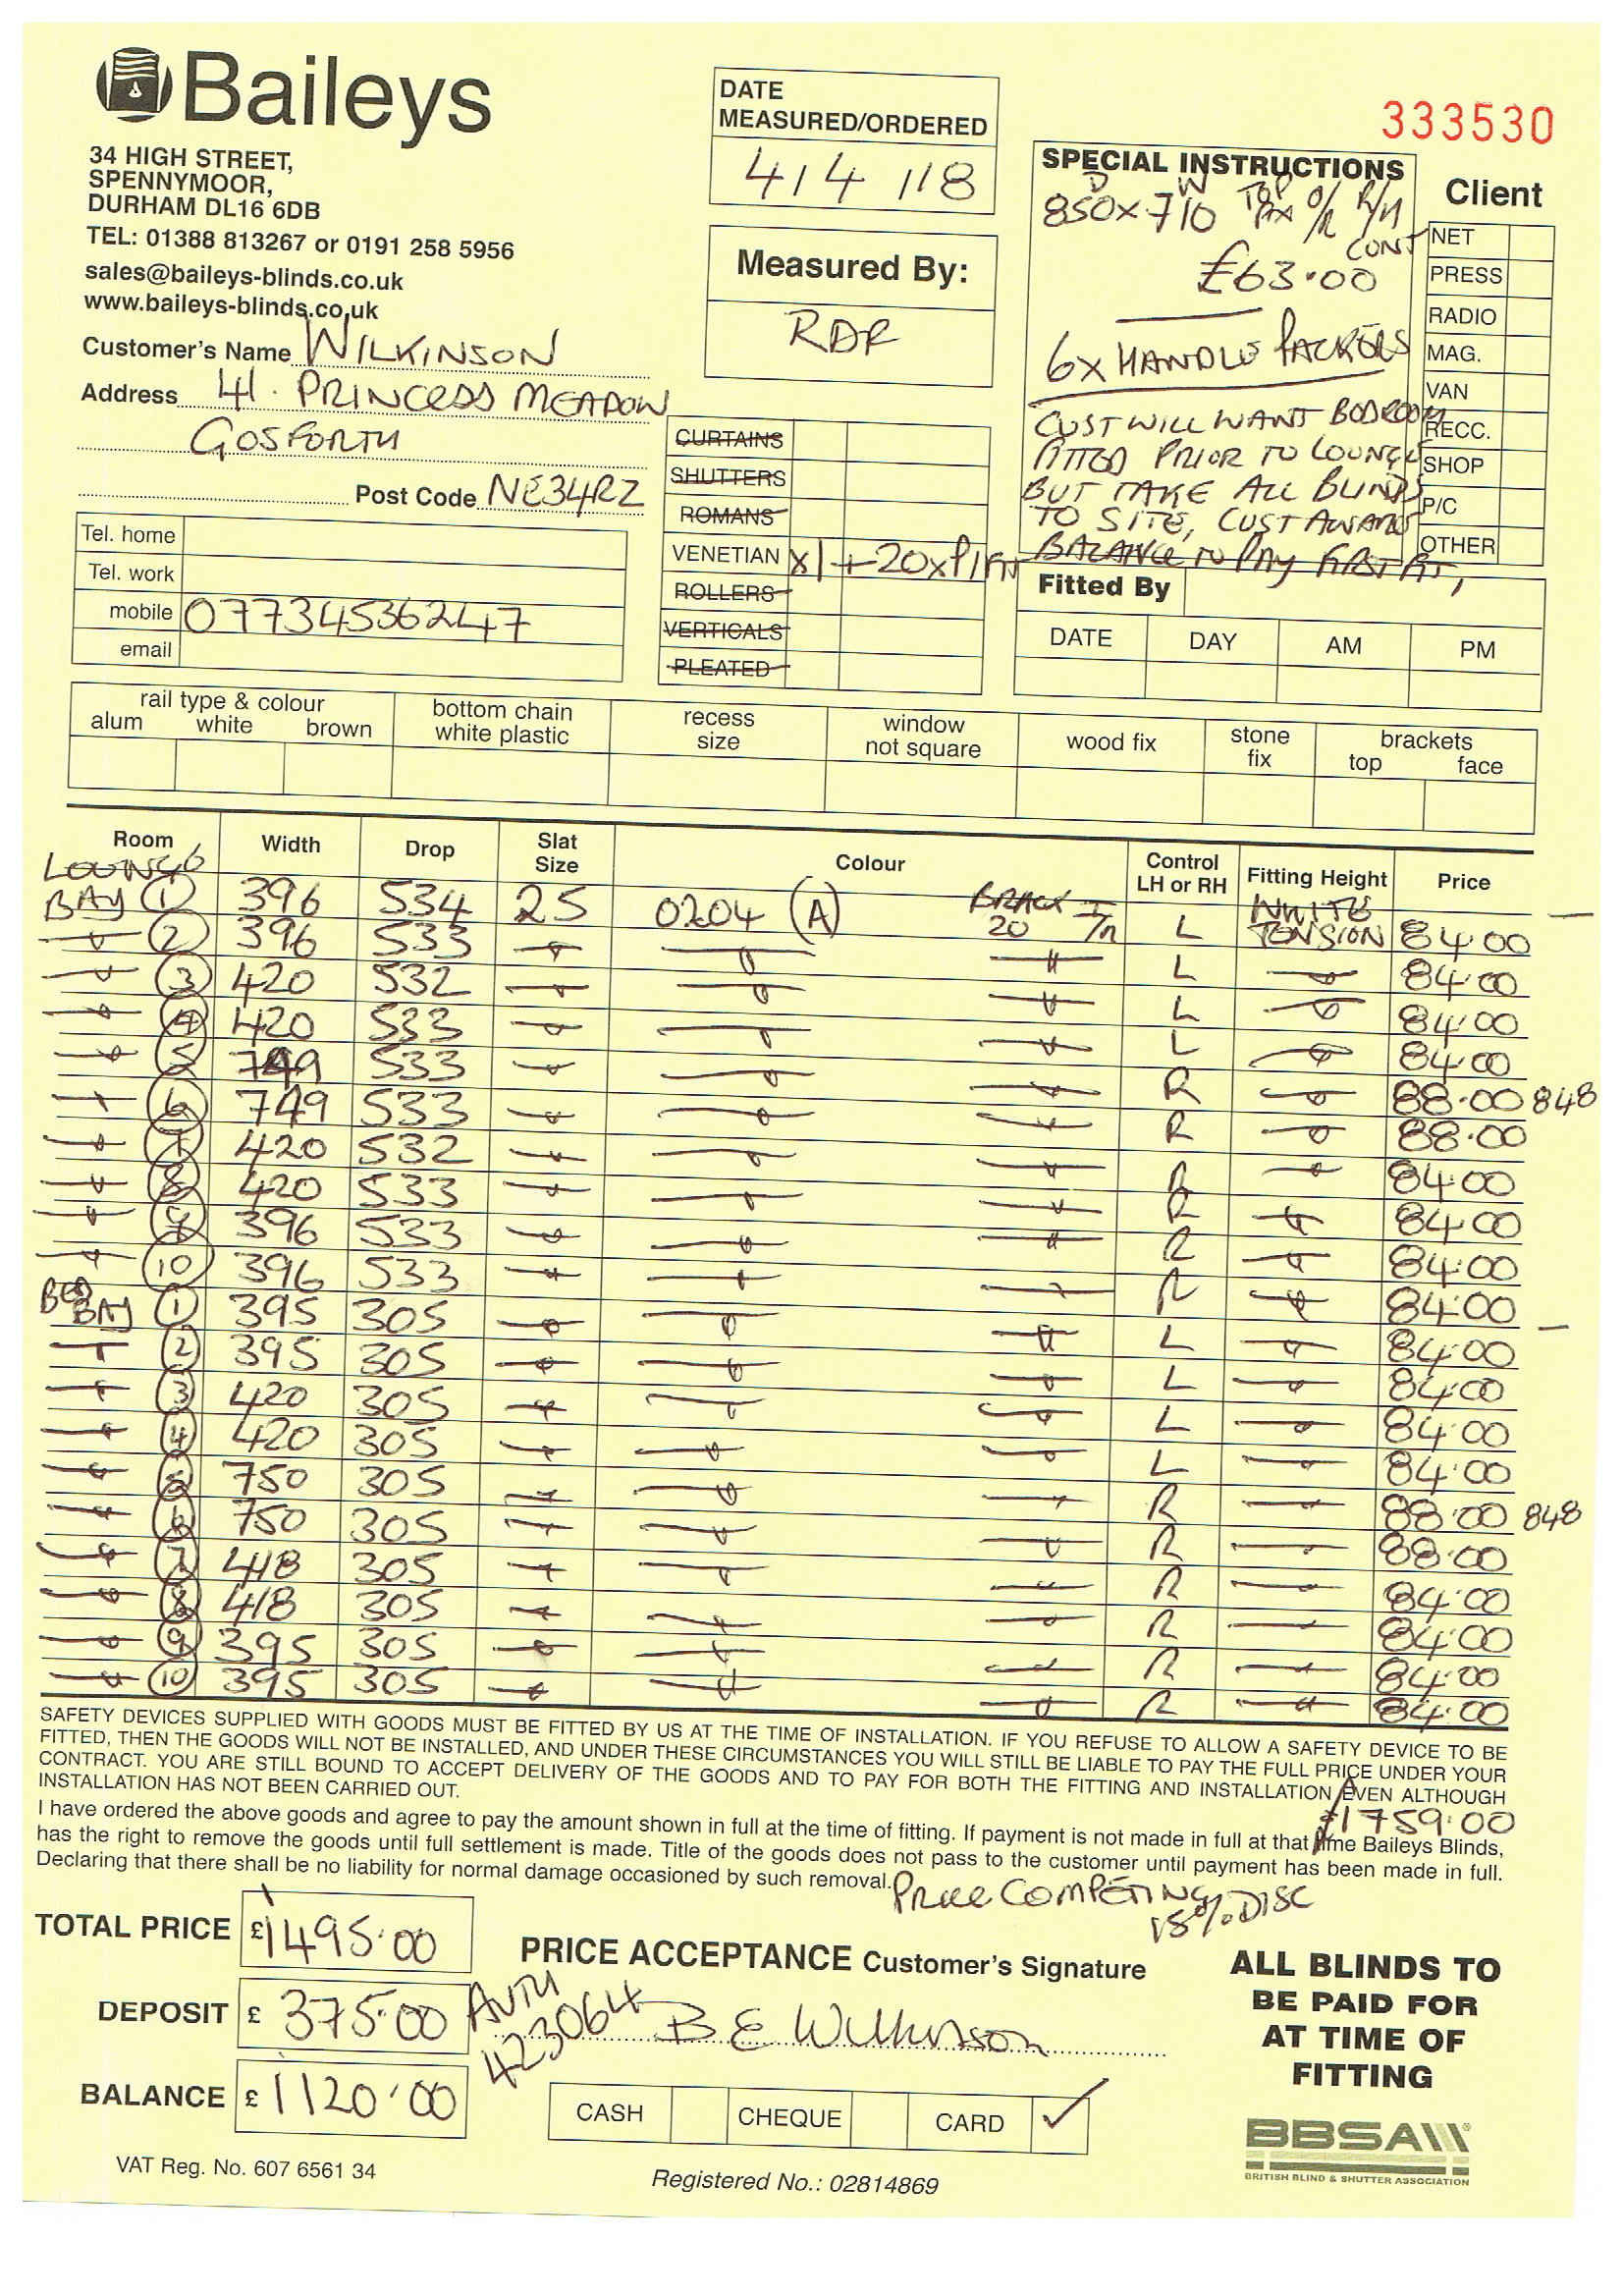 Baileys
34 HIGH STREET,
SPENNYMOOR,
DURHAM DL16 6DB
TEL: 01388 813267 or 0191 258 5956
sales@baileys-blinds.co.uk
www.baileys-blinds.co.uk
Customer's Name WILKINSON
Address 41. PRINCESS MEADOW
GOSFORTH
Post Code NE34RZ
Tel. home
Tel. work
mobile 077345362447
email
DATE
MEASURED/ORDERED
4/4/18
Measured By:
RDR
CURTAINS
SHUTTERS
ROMANS
VENETIAN x1 + 20x
ROLLERS
VERTICALS
PLEATED
333530
SPECIAL INSTRUCTIONS
D W
850x710 TOP FIX O/R R/H
CONT
£63.00
6x HANDLE PACKERS
CUST WILL WANT BEDROOM
FITTED PRIOR TO LOUNGE
BUT TAKE ALL BLINDS
TO SITE, CUST AWARE
BALANCE TO PAY FIRST FIT,
Client
NET
PRESS
RADIO
MAG.
VAN
RECC.
SHOP
P/C
OTHER
Fitted By
DATE DAY AM PM
rail type & colour
alum white brown
bottom chain
white plastic
recess
size
window
not square
wood fix
stone
fix
brackets
top face
Room Width Drop Slat Size Colour Control LH or RH Fitting Height Price
LOUNGE
BAY 1 396 534 25 0204 (A) 20 L WHITE TENSION 84.00
2 396 533 L 84.00
3 420 532 L 84.00
4 420 533 L 84.00
5 749 533 R 88.00 848
6 749 533 R 88.00
7 420 532 R 84.00
8 420 533 R 84.00
9 396 533 R 84.00
10 396 533 R 84.00
BED
BAY 1 395 305 L 84.00
2 395 305 L 84.00
3 420 305 L 84.00
4 420 305 L 84.00
5 750 305 R 88.00 848
6 750 305 R 88.00
7 418 305 R 84.00
8 418 305 R 84.00
9 395 305 R 84.00
10 395 305 R 84.00
SAFETY DEVICES SUPPLIED WITH GOODS MUST BE FITTED BY US AT THE TIME OF INSTALLATION. IF YOU REFUSE TO ALLOW A SAFETY DEVICE TO BE
FITTED, THEN THE GOODS WILL NOT BE INSTALLED, AND UNDER THESE CIRCUMSTANCES YOU WILL STILL BE LIABLE TO PAY THE FULL PRICE UNDER YOUR
CONTRACT. YOU ARE STILL BOUND TO ACCEPT DELIVERY OF THE GOODS AND TO PAY FOR BOTH THE FITTING AND INSTALLATION EVEN ALTHOUGH
INSTALLATION HAS NOT BEEN CARRIED OUT.
£1759.00
I have ordered the above goods and agree to pay the amount shown in full at the time of fitting. If payment is not made in full at that time Baileys Blinds,
has the right to remove the goods until full settlement is made. Title of the goods does not pass to the customer until payment has been made in full.
Declaring that there shall be no liability for normal damage occasioned by such removal.
PRICE COMPETING
15% DISC
TOTAL PRICE £1495.00
DEPOSIT £ 375.00 AUTH
423064
BALANCE £ 1120.00
PRICE ACCEPTANCE Customer's Signature
B E Wilkinson
CASH CHEQUE CARD ✓
ALL BLINDS TO
BE PAID FOR
AT TIME OF
FITTING
BBSA
BRITISH BLIND & SHUTTER ASSOCIATION
VAT Reg. No. 607 6561 34
Registered No.: 02814869